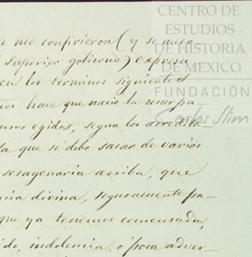 CENTRO DE
ESTUDIOS
DE HISTORIA
DE MEXICO
FUNDACIÓN
Carlos Slim
me confirieron (y se auto
Superior gobierno) expresa
en los terminos siguientes
hace que nació la
egidos, segun los acredita
ta que se debe sacar de varios
sexagenaria arriba, que
cia divina, seguramente pa
que ya tenemos comenzada,
ido, indolencia, ó poca adver